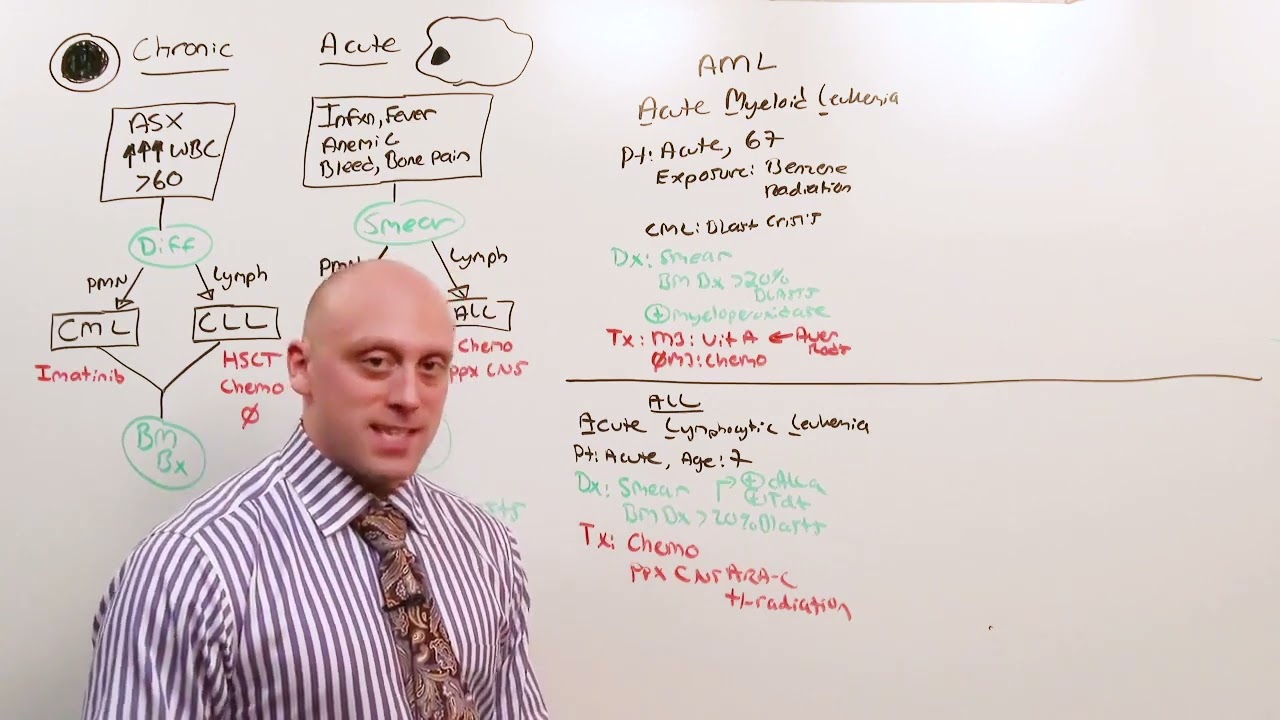 Chronic
ASX
↑↑↑ WBC
>60
Diff
PMN
Lymph
CML
CLL
Imatinib
HSCT
Chemo
Ø
BM
Bx
Acute
Infxn, Fever
Anemic
Bleed, Bone pain
Smear
PMN
Lymph
ALL
Chemo
ppx CNS
AML
Acute Myeloid Leukemia
Pt: Acute, 67
Exposure: Benzene
radiation
CML: Blast crisis
Dx: Smear
BM Bx >20%
Blasts
⊕ myeloperoxidase
Tx: M3: Vit A ← Auer
Rods
ØM3: Chemo
ALL
Acute Lymphocytic Leukemia
Pt: Acute, Age: 7
Dx: Smear ⊕ cALLa
⊕ Tdt
BM Bx >20% Blasts
Tx: Chemo
ppx CNS ARA-C
+/- radiation